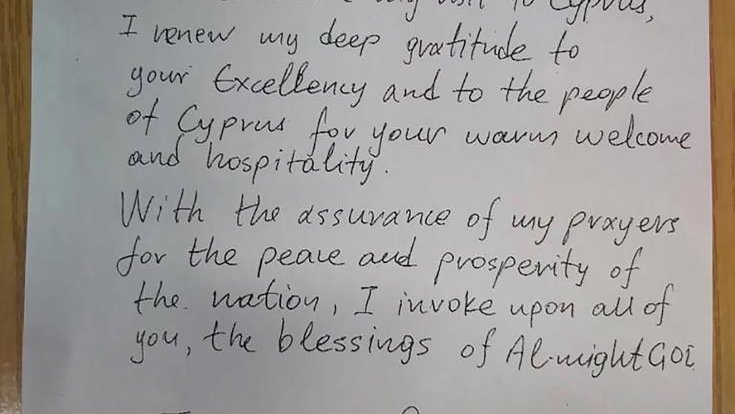 my visit to Cyprus,
I renew my deep gratitude to
your Excellency and to the people
of Cyprus for your warm welcome
and hospitality.
With the assurance of my prayers
for the peace and prosperity of
the nation, I invoke upon all of
you, the blessings of Al-might God